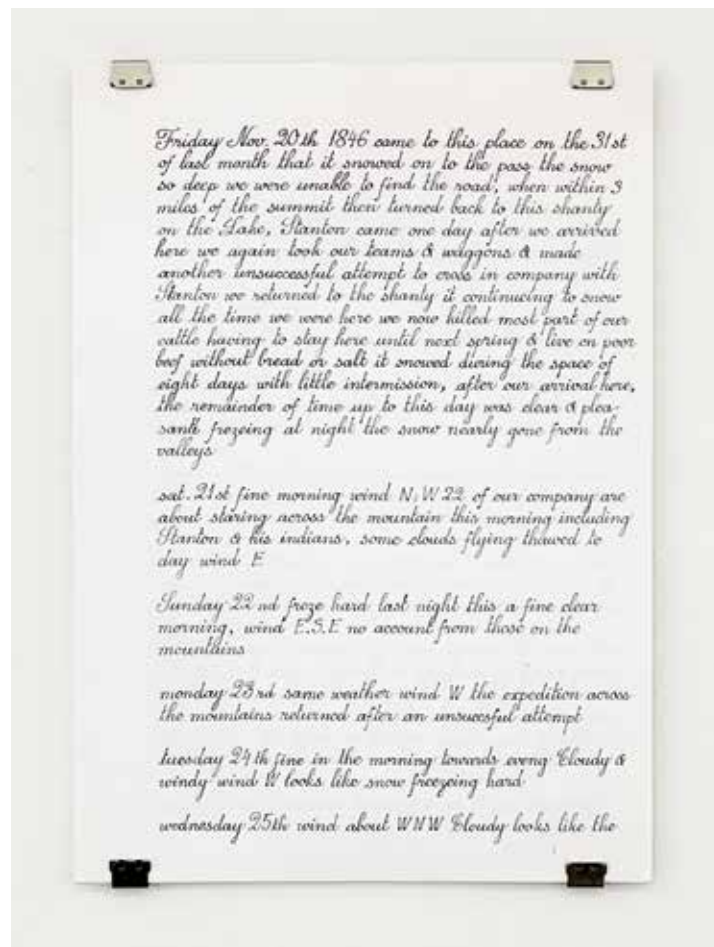 Friday Nov. 20th 1846 came to this place on the 31st
of last month that it snowed on to the pass the snow
so deep we were unable to find the road, when within 3
miles of the summit then turned back to this shanty
on the Lake, Stanton came one day after we arrived
here we again took our teams & waggons & made
another unsuccessful attempt to cross in company with
Stanton we returned to the shanty it continueing to snow
all the time we were here we now killed most part of our
cattle having to stay here until next spring & live on poor
beef without bread or salt it snowed during the space of
eight days with little intermission, after our arrival here,
the remainder of time up to this day was clear & plea-
sant frezeing at night the snow nearly gone from the
valleys

sat. 21st fine morning wind N:W 22 of our company are
about staring across the mountain this morning including
Stanton & his indians, some clouds flying thawed to
day wind E

Sunday 22nd froze hard last night this a fine clear
morning, wind E.S.E no account from those on the
mountains

monday 23rd same weather wind W the expedition across
the mountains returned after an unsuccesful attempt

tuesday 24th fine in the morning towards eveng Cloudy &
windy wind W looks like snow freezeing hard

wednesday 25th wind about WNW Cloudy looks like the